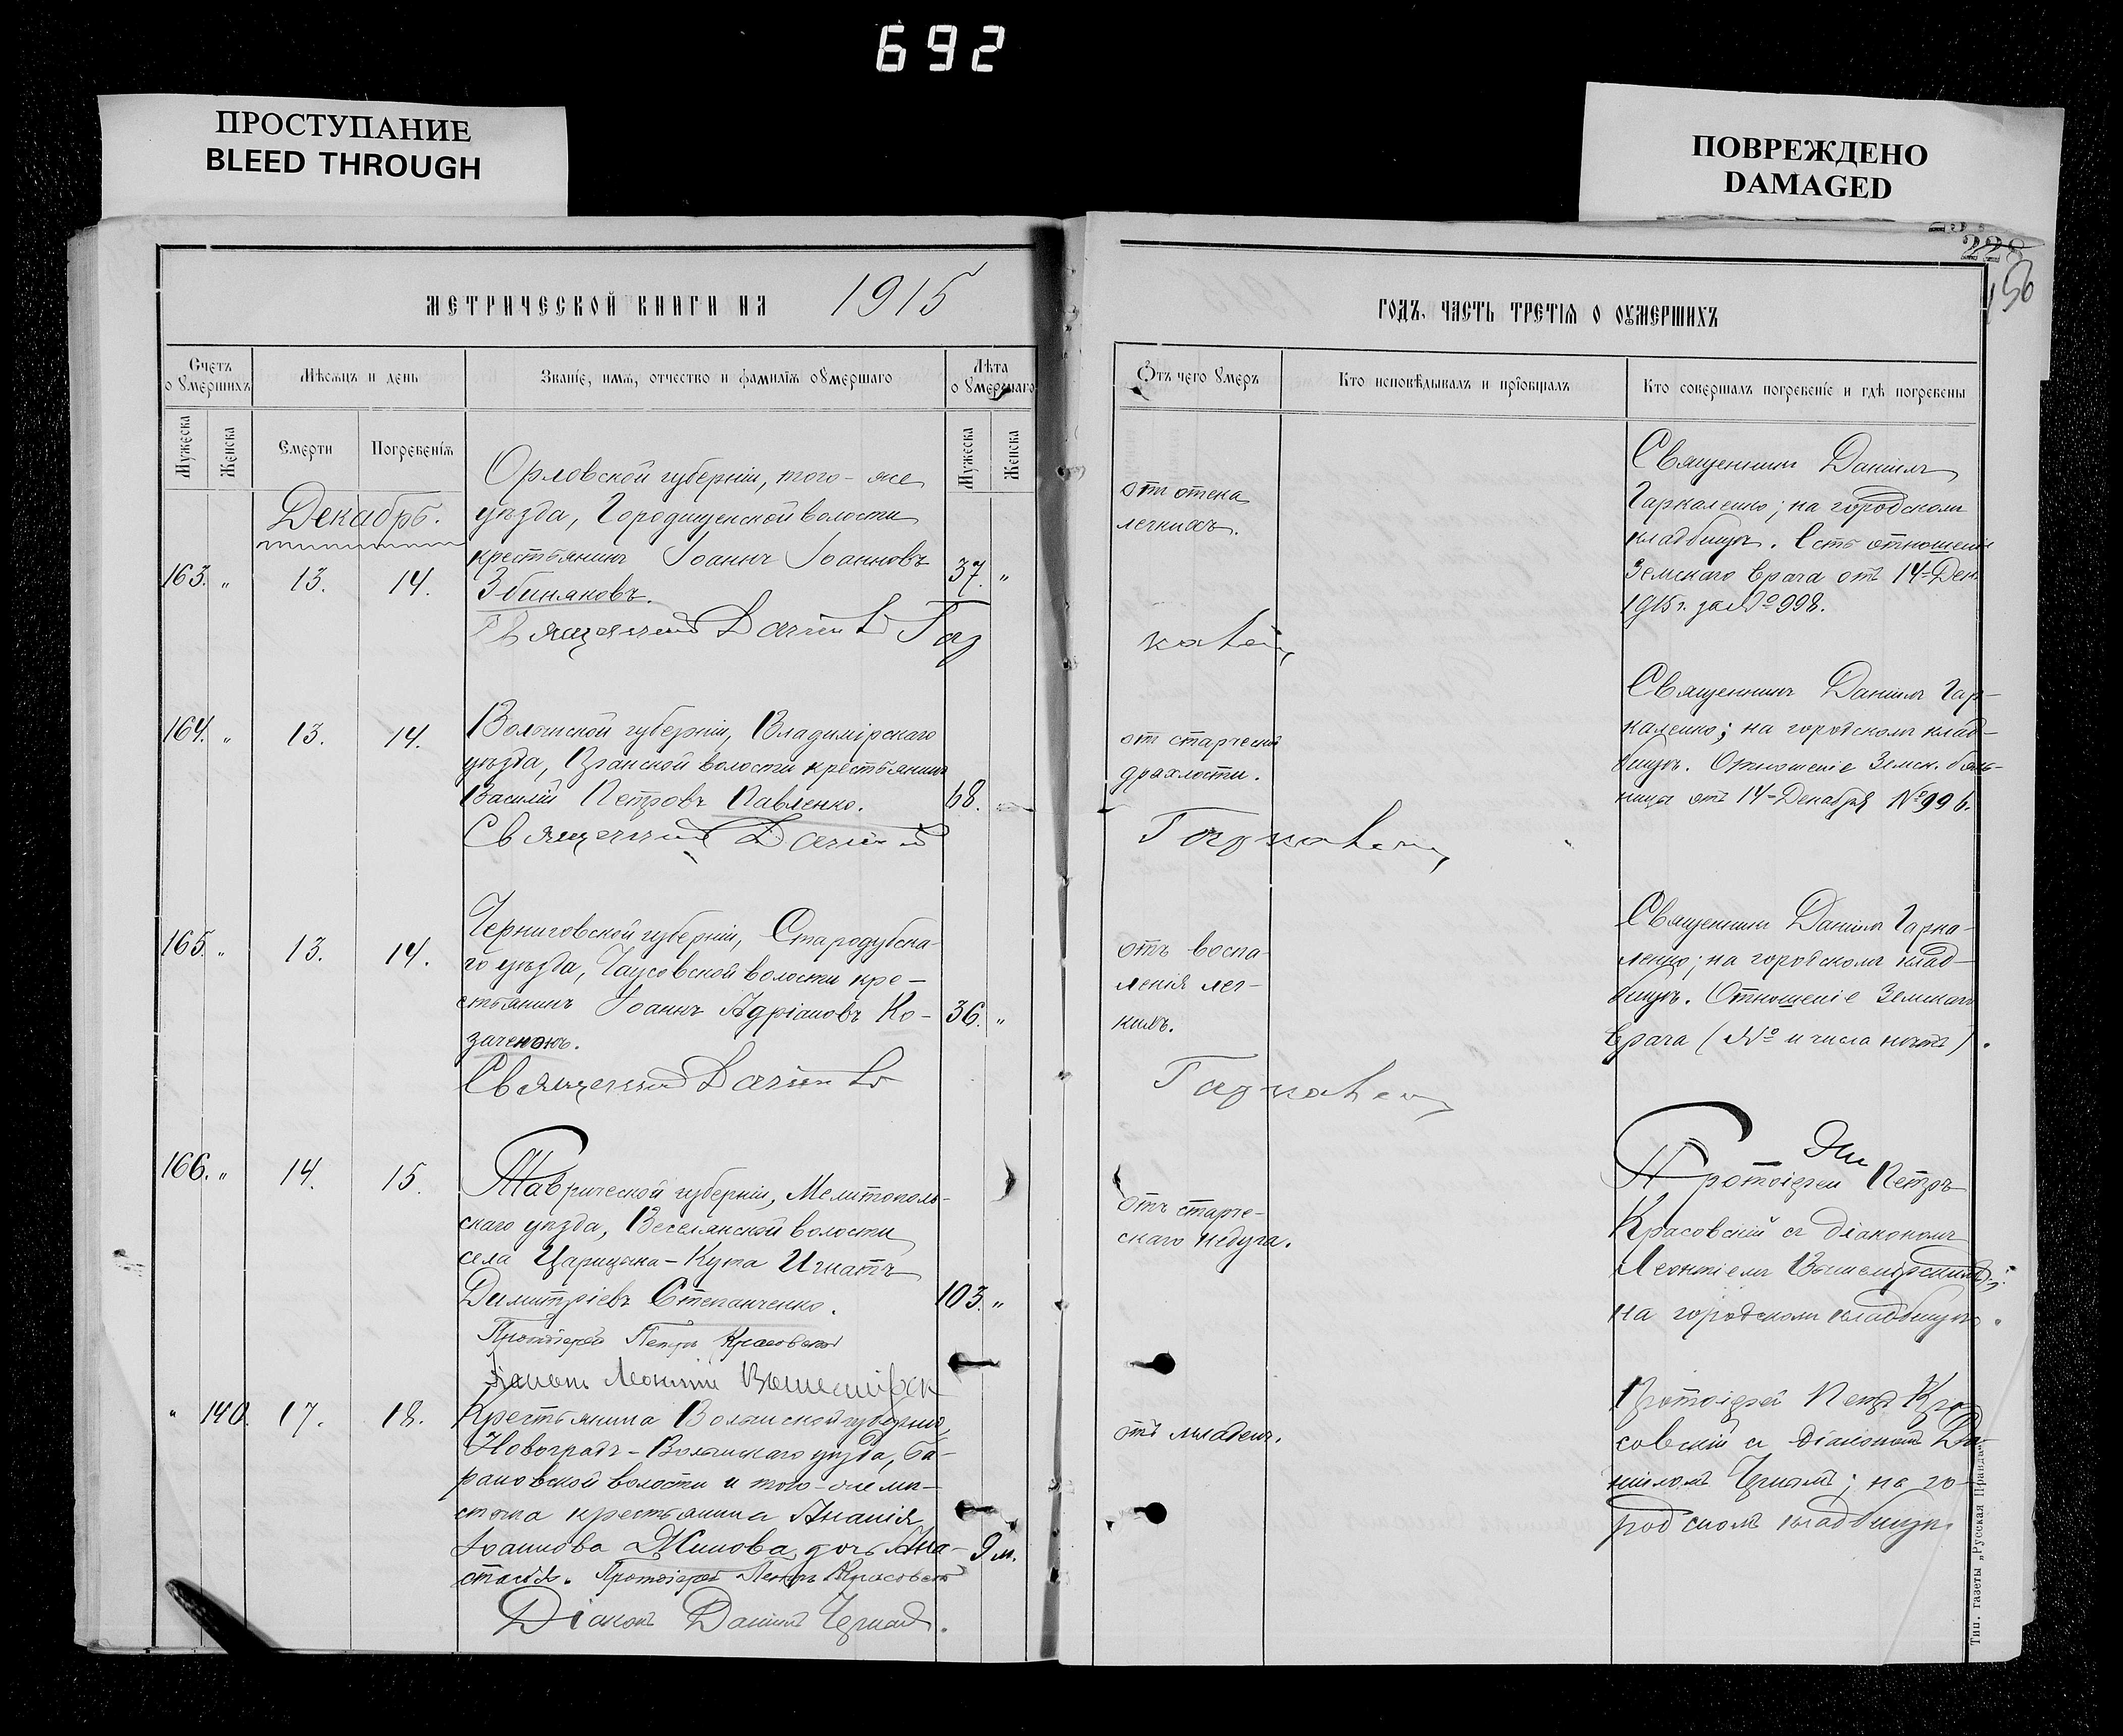 692
ПРОСТУПАНИЕ
BLEED THROUGH
ПОВРЕЖДЕНО
DAMAGED
156
МЕТРИЧЕСКОЙ КНИГИ НА 1915
ГОДЪ, ЧАСТЬ ТРЕТІЯ О ОУМЕРШИХЪ
Счетъ о умершихъ
Мѣсяцъ и день
Званіе, имя, отчество и фамилія оумершаго
Лѣта о умершаго
Мужеска
Женска
Смерти
Погребенія
Мужеска
Женска
Отъ чего умеръ
Кто исповѣдывалъ и пріобщалъ
Кто совершалъ погребеніе и гдѣ погребены
Декабрь.
163. „ 13. 14.
Орловской губерніи, того-же
уѣзда, Городищенской волости
крестьянинъ Іоаннъ Іоанновъ
Збиняковъ.
37. „
отъ отека
легкихъ.
Священникъ Даніилъ
Гаркаленко; на городскомъ
кладбищѣ. Есть отношеніе
Земскаго врача отъ 14-Дек.
1915 г. за № 998.
Священникъ Даніилъ Гаркаленко
164. „ 13. 14.
Волынской губерніи, Владимірскаго
уѣзда, волости крестьянинъ
Василій Петровъ Павленко.
68. „
отъ старческой
дряхлости.
Священникъ Даніилъ Гар-
каленко; на городскомъ клад-
бищѣ. Отношеніе Земск. боль-
ницы отъ 14-Декабря № 996.
Священникъ Даніилъ Гаркаленко
165. „ 13. 14.
Черниговской губерніи, Стародубска-
го уѣзда, волости кре-
стьянинъ Іоаннъ Адріановъ Ко-
заченокъ.
36. „
отъ воспа-
ленія лег-
кихъ.
Священникъ Даніилъ Гарка-
ленко; на городскомъ клад-
бищѣ. Отношеніе Земскаго
врача (№ и числа нѣтъ).
Священникъ Даніилъ Гаркаленко
166. „ 14. 15.
Таврической губерніи, Мелитополь-
скаго уѣзда, Веселянской волости
села Царицына-Кута Игнатъ
Димитріевъ Степанченко.
103. „
отъ старче-
скаго недуга.
Протоіерей Петръ
Красовскій съ діакономъ
Леонтіемъ Вышемірскимъ;
на городскомъ кладбищѣ.
Протоіерей Петръ Красовскій
Діаконъ Леонтій Вышемірск
„ 140. 17. 18.
Крестьянина Волынской губерніи,
Новоградъ-Волынскаго уѣзда, Ба-
рановской волости и того-же мѣ-
стечка крестьянина Ананія
Іоаннова Жинова дочь Ана-
стасія.
9 м.
отъ младен.
Протоіерей Петръ Кра-
совскій съ діакономъ Да-
ніиломъ Чернымъ; на го-
родскомъ кладбищѣ.
Протоіерей Петръ Красовскій
Діаконъ Даніилъ Черный.
Тип. газеты „Русская Правда“